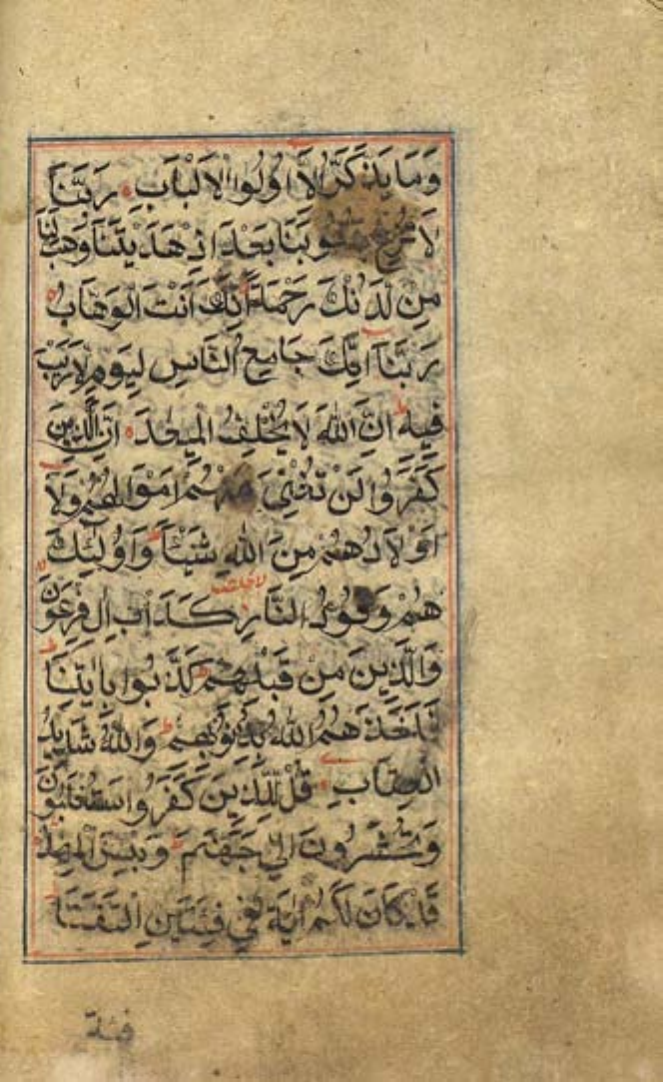 وَمَا يَذَّكَّرُ اِلَّا اُولُوا الْاَلْبَابِ رَبَّنَا
لَا تُزِغْ قُلُوبَنَا بَعْدَ اِذْ هَدَيْتَنَا وَهَبْ لَنَا
مِنْ لَدُنْكَ رَحْمَةً اِنَّكَ اَنْتَ الْوَهَّابُ
رَبَّنَا اِنَّكَ جَامِعُ النَّاسِ لِيَوْمٍ لَا رَيْبَ
فِيهِ اِنَّ اللّٰهَ لَا يُخْلِفُ الْمِيعَادَ اِنَّ الَّذِينَ
كَفَرُوا لَنْ تُغْنِيَ عَنْهُمْ اَمْوَالُهُمْ وَلَا
اَوْلَادُهُمْ مِنَ اللّٰهِ شَيْئًا وَاُولٰئِكَ
هُمْ وَقُودُ النَّارِ كَدَاْبِ اٰلِ فِرْعَوْنَ
وَالَّذِينَ مِنْ قَبْلِهِمْ كَذَّبُوا بِاٰيَاتِنَا
فَاَخَذَهُمُ اللّٰهُ بِذُنُوبِهِمْ وَاللّٰهُ شَدِيدُ
الْعِقَابِ قُلْ لِلَّذِينَ كَفَرُوا سَتُغْلَبُونَ
وَتُحْشَرُونَ اِلٰى جَهَنَّمَ وَبِئْسَ الْمِهَادُ
قَدْ كَانَ لَكُمْ اٰيَةٌ فِي فِئَتَيْنِ الْتَقَتَا
فئة